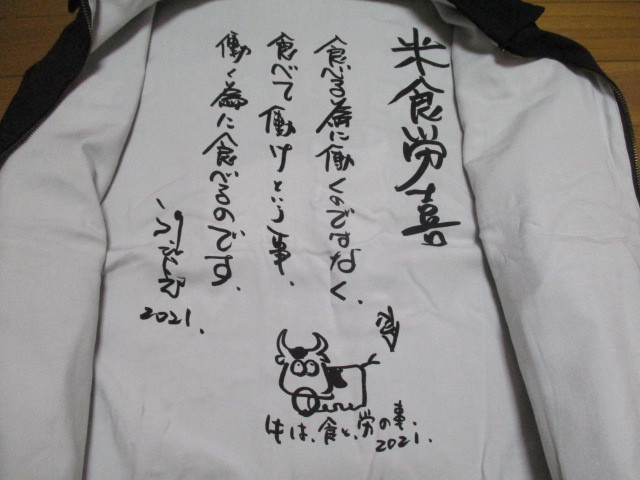 米食労喜
食べる為に働くのではなく、
食べて働けという事、
働く為に食べるのです、
2021.
牛は、食と、労の事、
2021.